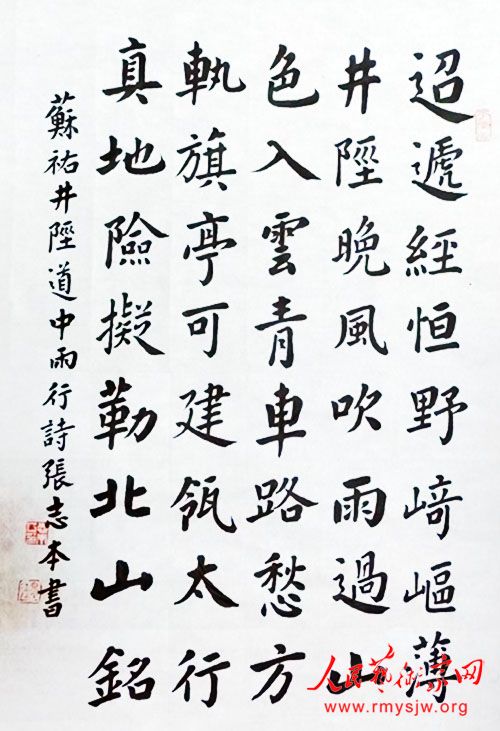 迢遞經恒野崎嶇薄
井陘晚風吹雨過山
色入雲青車路愁方
軌旗亭可建瓴太行
真地險擬勒北山銘
蘇祐井陘道中雨行詩張志本書
人民艺术家网
www.rmysjw.org